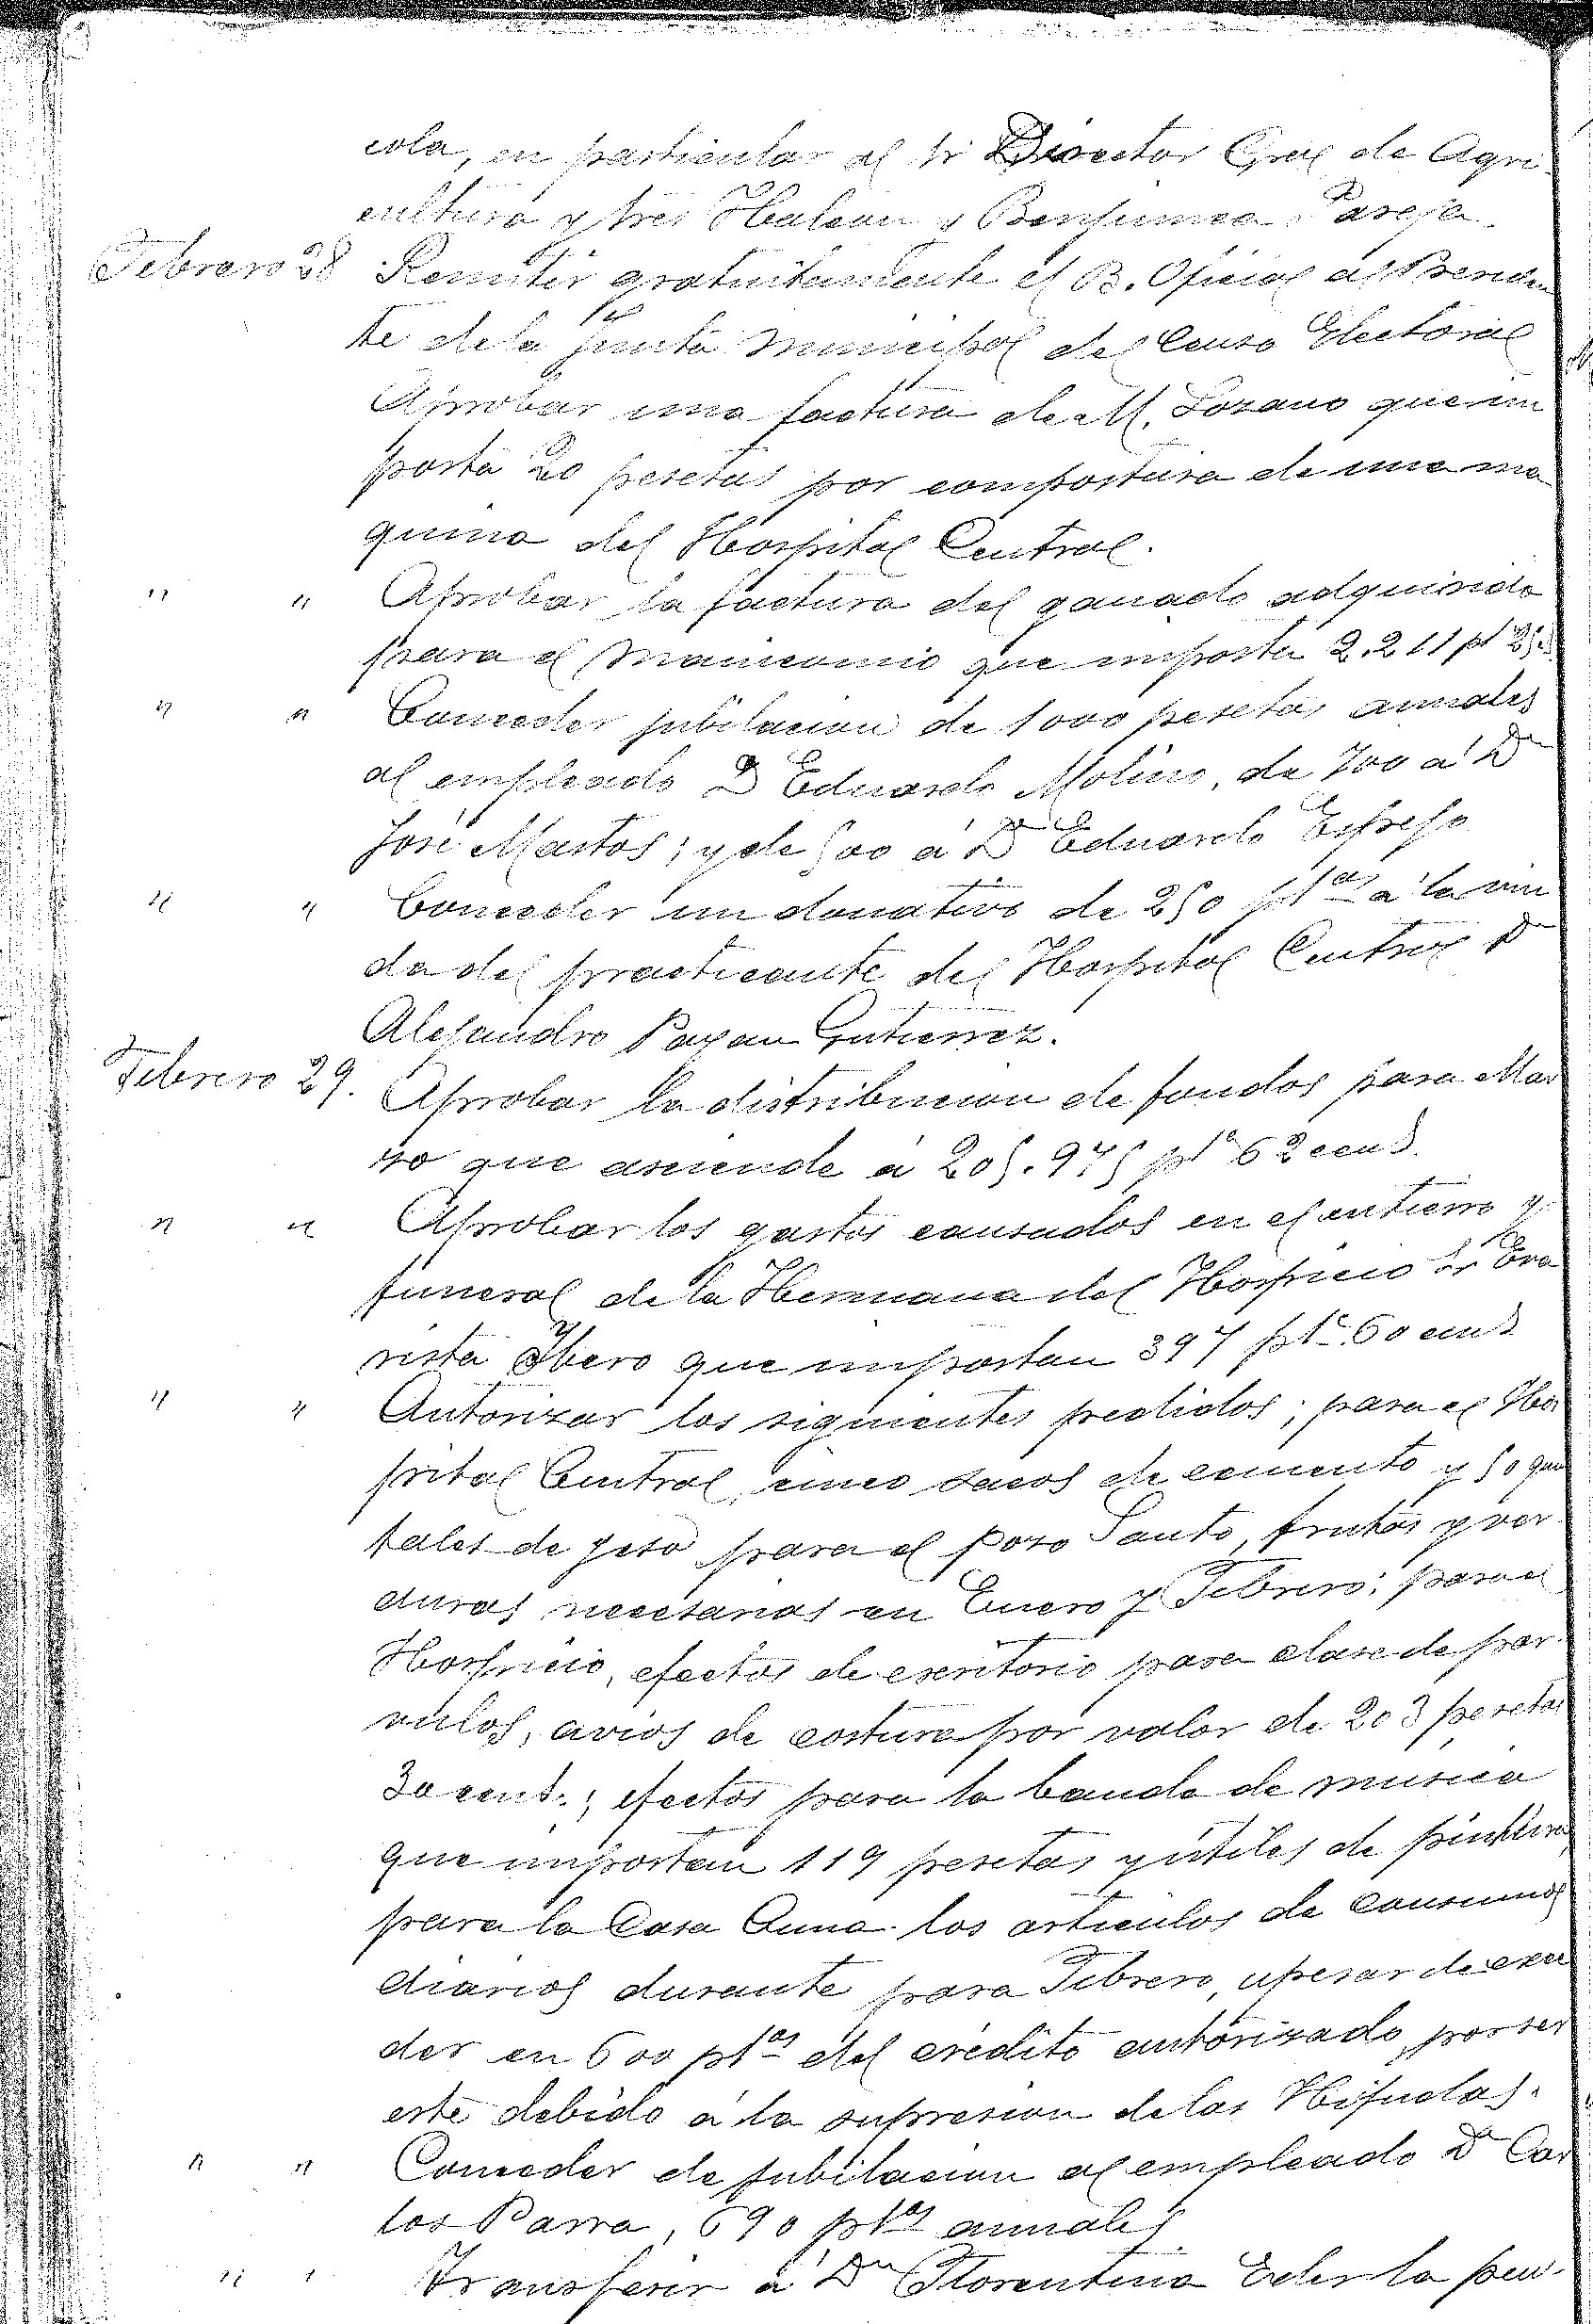 cola, en particular al Sr Director Gral de Agri
cultura y tres Halcon y Benjumea. Pareja
Febrero 28 Remitir gratuitamente el B. Oficial al Presiden
te dela Junta Municipal del Censo Electoral
Aprobar una factura de M. Lozano que im
porta 20 pesetas por compostura de una ma
quina del Hospital Central.
" " Aprobar la factura del ganado adquirido
para el Manicomio que importa 2.211 pt
" " Conceder jubilacion de 1000 pesetas anuales
al empleado D Eduardo Molino, de 700 a Dn
José Martos; y de 500 á Dn Eduardo Espejo
" " Conceder un donativo de 250 ptas a la viu
da del practicante del Hospital Central Dn
Alejandro Payan Gutierrez.
Febrero 29. Aprobar la distribucion de fondos para Mar
zo que asciende a 205.975 pts 62 cents.
" " Aprobar los gastos causados en el entierro y
funeral dela Hermana del Hospicio Sr Eva
rista Ibero que importan 397 pts 60 cents
" " Autorizar los siguientes pedidos; para el Hos
pital Central, cinco sacos de cemento y 50 quin
tales de yeso para el Pozo Santo, frutas y ver
duras necesarias en Enero y Febrero; para el
Hospicio, efectos de escritorio para clase de par
vulos, avios de costura por valor de 203 pesetas
30 cents.; efectos para la banda de musica
que importan 119 pesetas y utiles de pintura
para la Casa Cuna los articulos de consumos
diarios durante para Febrero, apesar de exce
der en 600 ptas del crédito autorizado, por ser
este debido a la supresion delas Hijuelas.
" " Conceder de jubilacion al empleado Dn Car
los Parra, 690 ptas anuales.
" " Transferir á Dn Florentina Eder la pen-